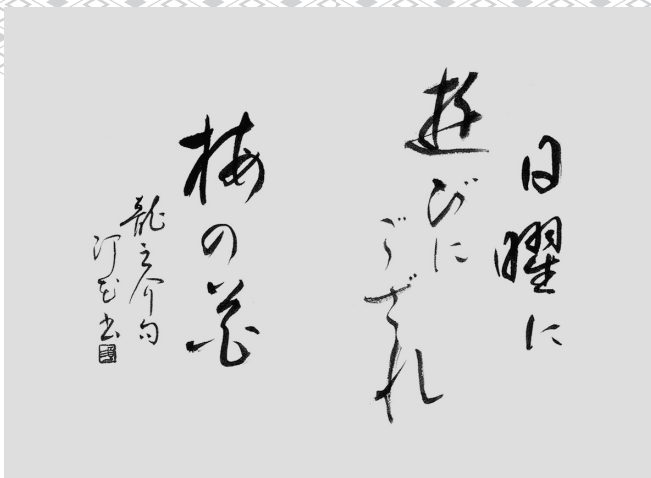 日曜に
遊びに
ござれ
梅の花
龍之介句
汀花書